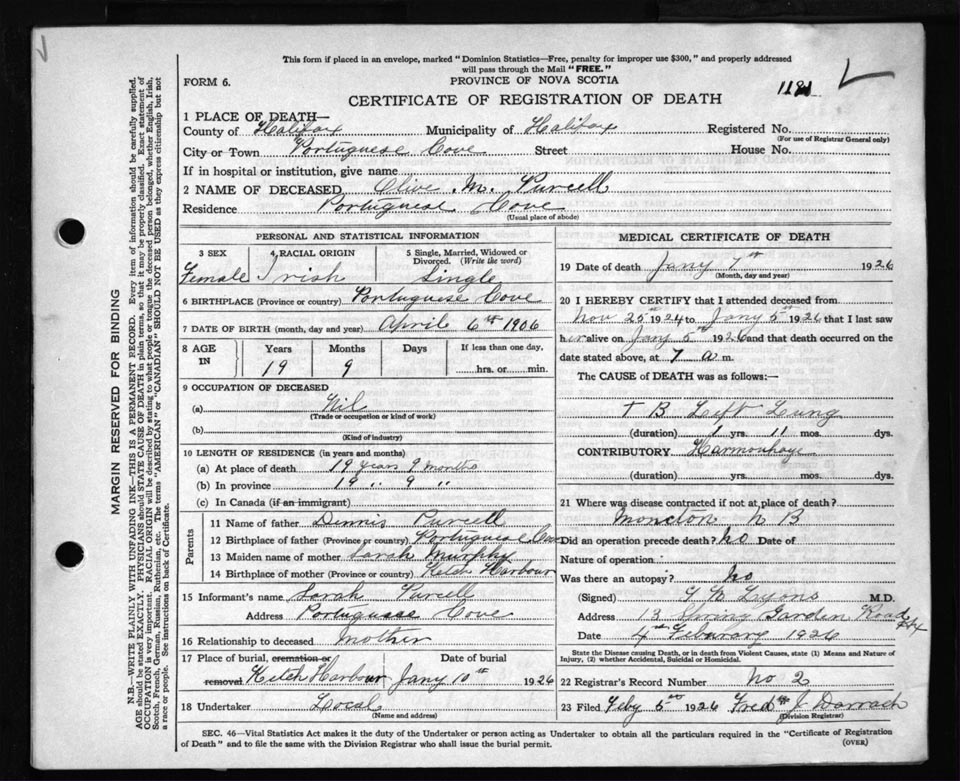 This form if placed in an envelope, marked "Dominion Statistics—Free, penalty for improper use $300," and properly addressed
will pass through the Mail "FREE."
FORM 6.
PROVINCE OF NOVA SCOTIA
1181
CERTIFICATE OF REGISTRATION OF DEATH
1 PLACE OF DEATH—
County of Halifax Municipality of Halifax Registered No.
(For use of Registrar General only)
City or Town Portuguese Cove Street House No.
If in hospital or institution, give name
2 NAME OF DECEASED Olive M. Purcell
Residence Portuguese Cove
(Usual place of abode)
PERSONAL AND STATISTICAL INFORMATION
3 SEX 4 RACIAL ORIGIN 5 Single, Married, Widowed or
Divorced. (Write the word)
Female Irish Single
6 BIRTHPLACE (Province or country) Portuguese Cove
7 DATE OF BIRTH (month, day and year) April 6th 1906
8 AGE IN Years Months Days If less than one day,
19 9 hrs. or min.
9 OCCUPATION OF DECEASED
(a) Nil
(Trade or occupation or kind of work)
(b)
(Kind of industry)
10 LENGTH OF RESIDENCE (in years and months)
(a) At place of death 19 years 9 months
(b) In province 19 " 9 "
(c) In Canada (if an immigrant)
Parents
11 Name of father Dennis Purcell
12 Birthplace of father (Province or country) Portuguese Cove
13 Maiden name of mother Sarah Murphy
14 Birthplace of mother (Province or country) Ketch Harbour
15 Informant's name Sarah Purcell
Address Portuguese Cove
16 Relationship to deceased Mother
17 Place of burial, cremation or Date of burial
removal Ketch Harbour Jany 10th 1926
18 Undertaker Local
(Name and address)
MEDICAL CERTIFICATE OF DEATH
19 Date of death Jany 7th 1926
(Month, day and year)
20 I HEREBY CERTIFY that I attended deceased from
Nov 25th 1924 to Jany 5th 1926 that I last saw
her alive on Jany 5th 1926 and that death occurred on the
date stated above, at 7 a m.
The CAUSE of DEATH was as follows:—
T B Left Lung
(duration) 1 yrs. 11 mos. dys.
CONTRIBUTORY
(duration) yrs. mos. dys.
21 Where was disease contracted if not at place of death?
Moncton N B
Did an operation precede death? no Date of
Nature of operation
Was there an autopsy? no
(Signed) Lyons M.D.
Address 13 Spring Garden Road Hfx
Date 4th Feburary 1926
State the Disease causing Death, or in death from Violent Causes, state (1) Means and Nature of
Injury, (2) whether Accidental, Suicidal or Homicidal.
22 Registrar's Record Number No 2
23 Filed Feby 5th 1926 Fred J. Darrach
(Division Registrar)
SEC. 46—Vital Statistics Act makes it the duty of the Undertaker or person acting as Undertaker to obtain all the particulars required in the "Certificate of Registration
of Death" and to file the same with the Division Registrar who shall issue the burial permit.
(OVER)
MARGIN RESERVED FOR BINDING
N.B.—WRITE PLAINLY WITH UNFADING INK—THIS IS A PERMANENT RECORD. Every item of information should be carefully supplied.
AGE should be stated EXACTLY. PHYSICIANS should STATE CAUSE OF DEATH in plain terms, so that it may be properly classified. Exact statement of
OCCUPATION is very important. RACIAL ORIGIN will be described by stating to what people or tongue the deceased person belonged, whether English, Irish,
Scotch, French, German, Russian, Ruthenian, etc. The terms "AMERICAN" or "CANADIAN" SHOULD NOT BE USED as they express citizenship but not
a race or people. See instructions on back of Certificate.